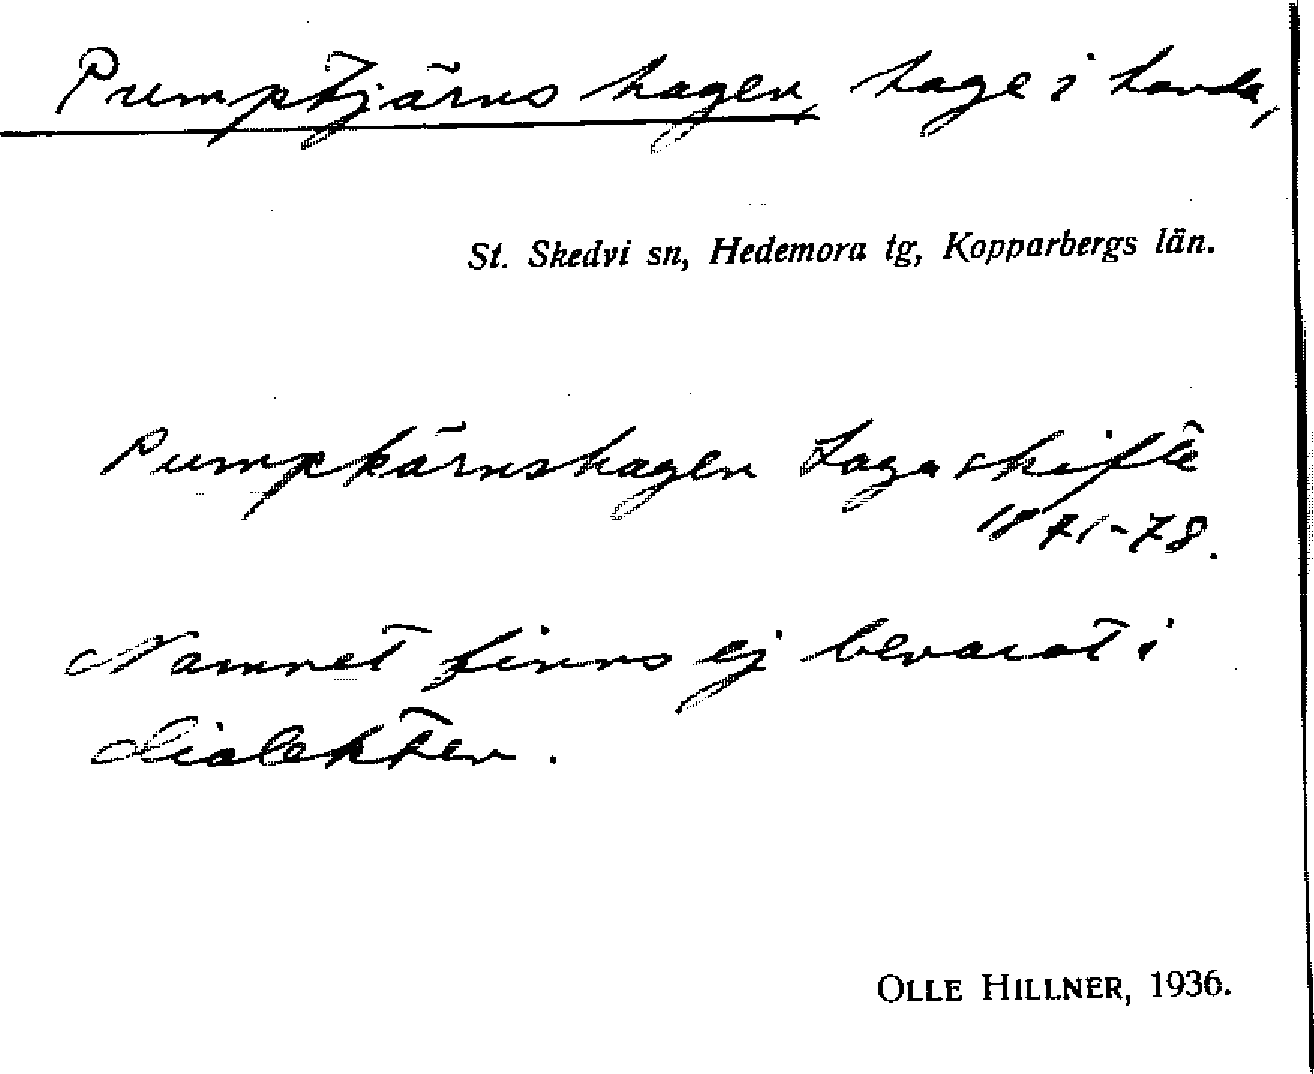 Pumptjärnshagen, hage i Landa,
St. Skedvi sn, Hedemora tg, Kopparbergs län.
Pumpkärnshagen Laga skifte
1871-78.
Namnet finns ej bevarat i
dialekten.
OLLE HILLNER, 1936.